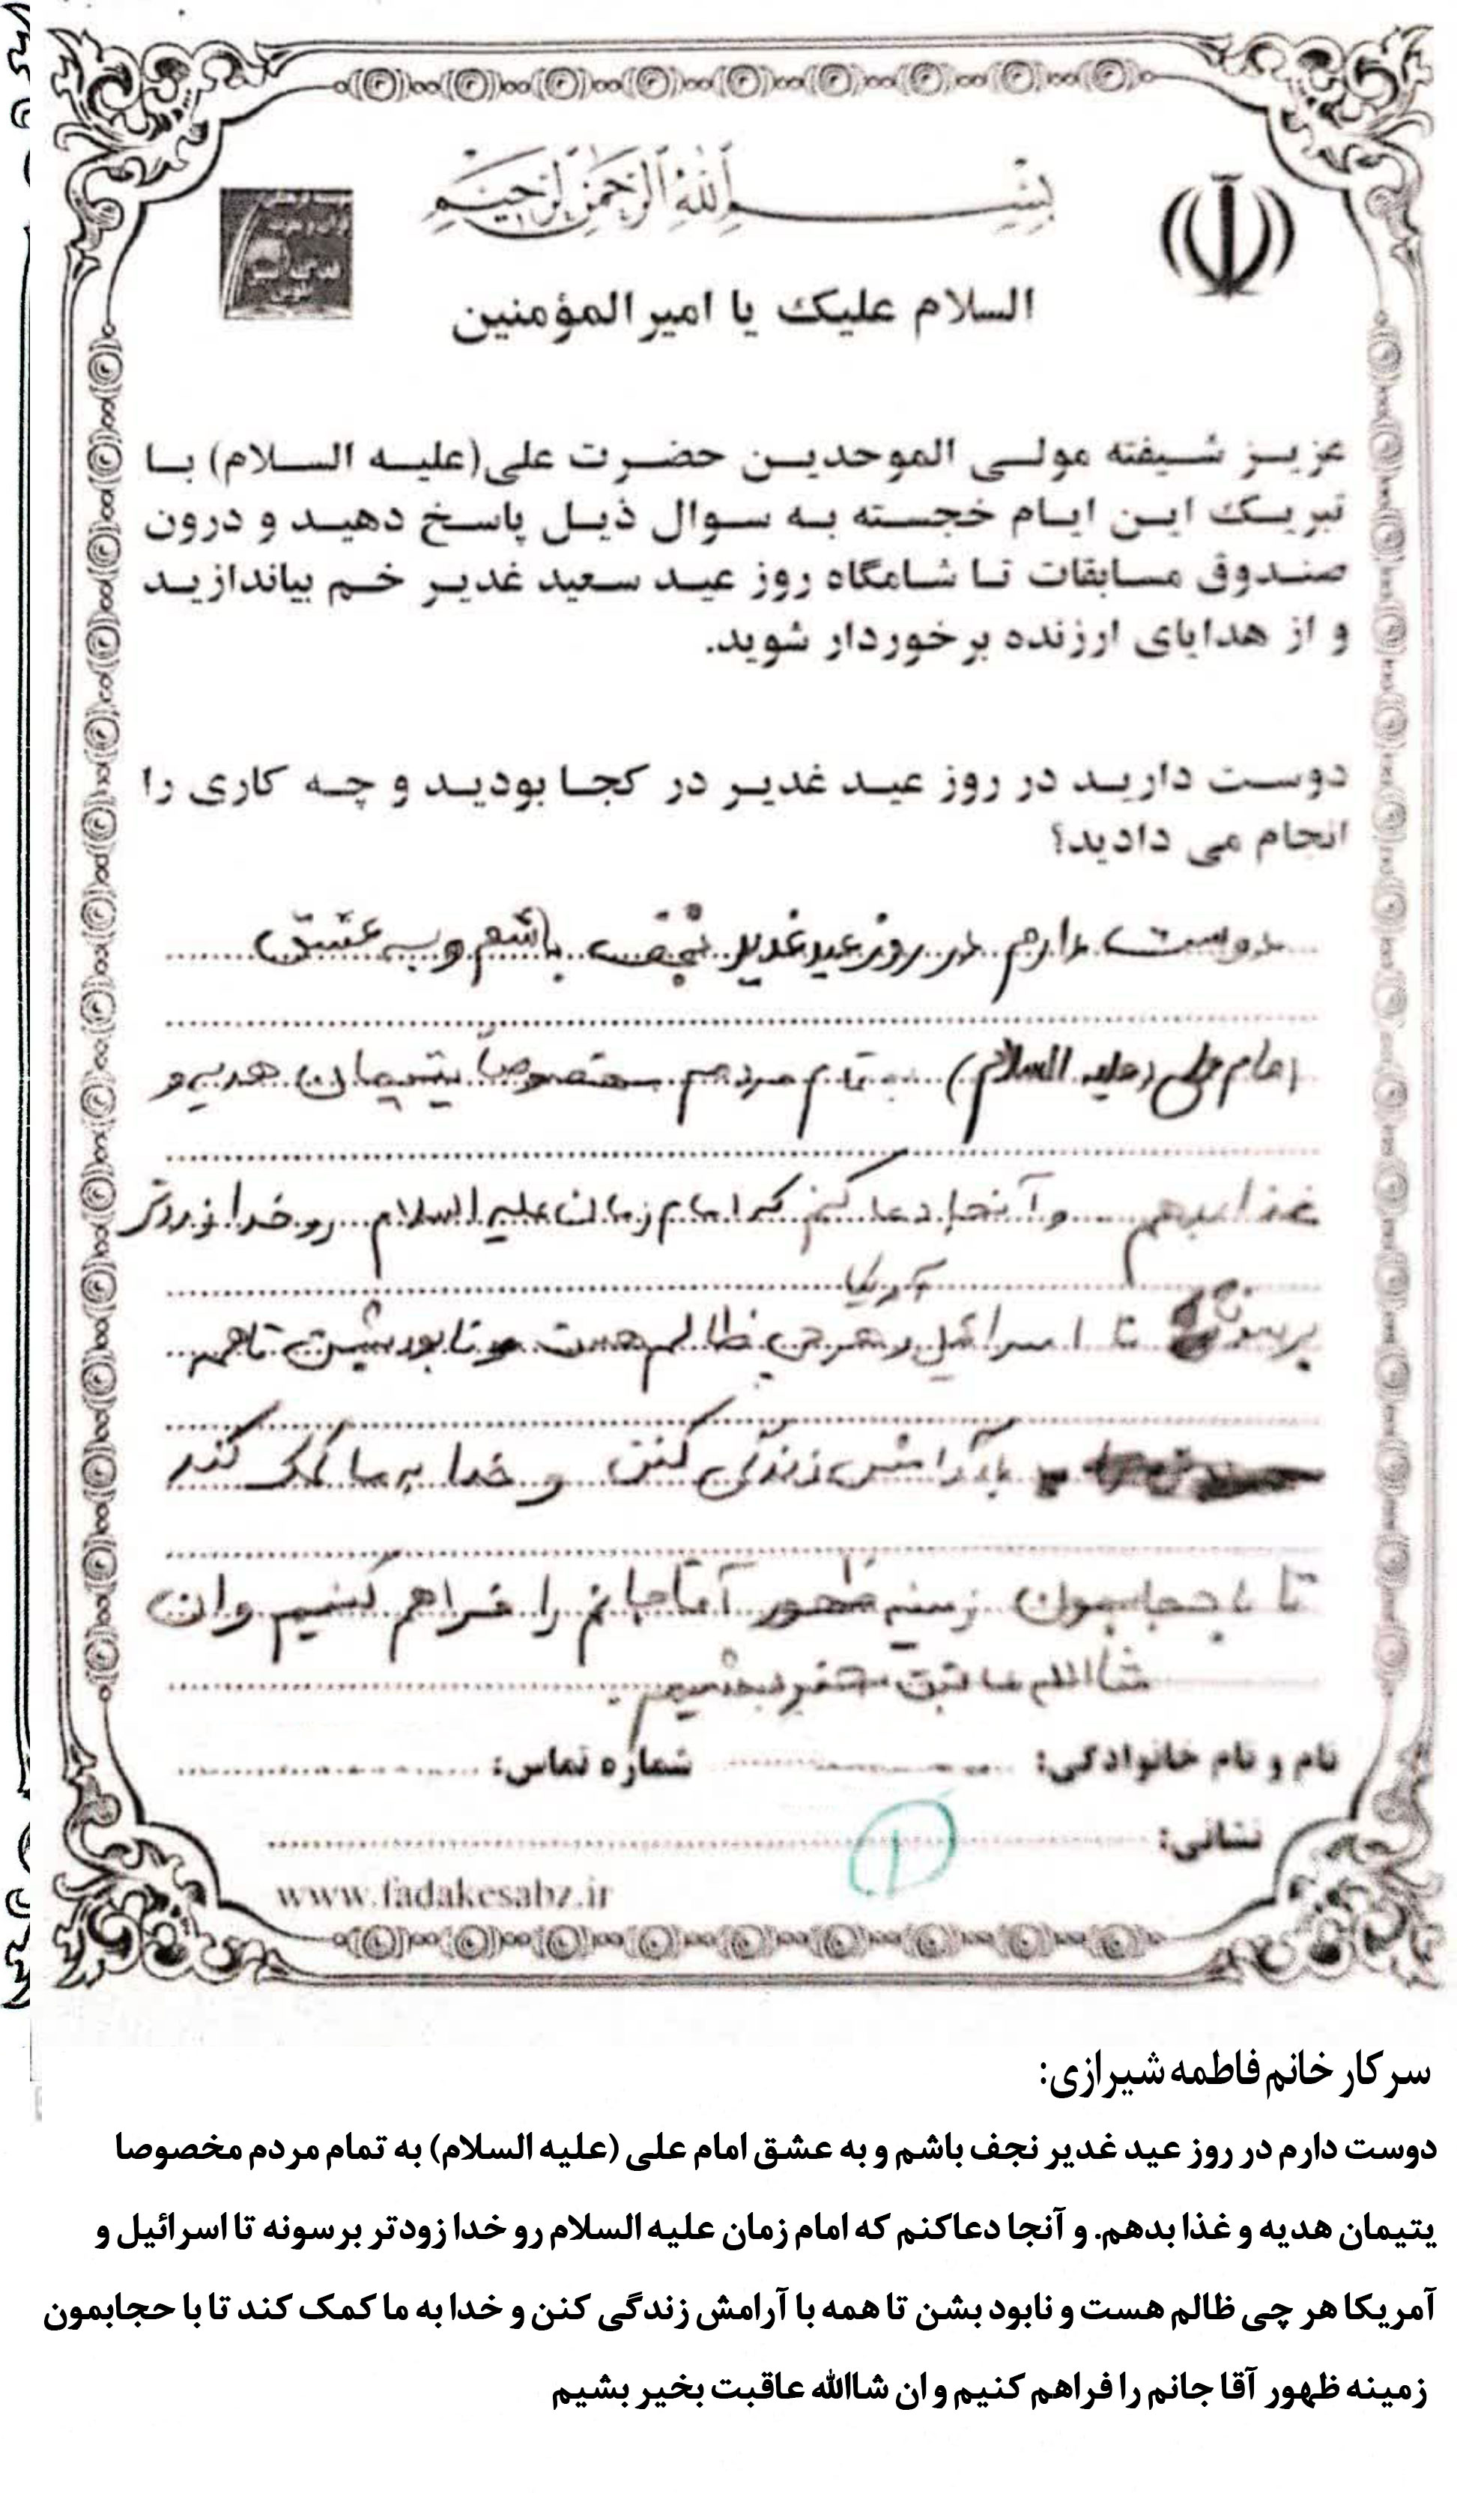 بسم الله الرحمن الرحیم
السلام علیک یا امیر المؤمنین
عزیز شیفته مولی الموحدین حضرت علی(علیه السلام) با
تبریک این ایام خجسته به سوال ذیل پاسخ دهید و درون
صندوق مسابقات تا شامگاه روز عید سعید غدیر خم بیاندازید
و از هدایای ارزنده برخوردار شوید.
دوست دارید در روز عید غدیر در کجا بودید و چه کاری را
انجام می دادید؟
دوست دارم در روز عید غدیر نجف باشم و به عشق
امام علی (علیه السلام) به تمام مردم مخصوصاً یتیمان هدیه و
غذا بدهم و آنجا دعا کنم که امام زمان علیه السلام رو خدا زودتر
آمریکا
برسونه تا اسرائیل و هر چی ظالم هست و نابود بشن تا همه
با آرامش زندگی کنن و خدا به ما کمک کند
تا با حجابمون زمینه ظهور آقا جانم را فراهم کنیم و ان
شاالله عاقبت بخیر بشیم.
نام و نام خانوادگی: شماره تماس:
نشانی:
۱
www.fadakesabz.ir
سرکار خانم فاطمه شیرازی:
دوست دارم در روز عید غدیر نجف باشم و به عشق امام علی (علیه السلام) به تمام مردم مخصوصا
یتیمان هدیه و غذا بدهم. و آنجا دعاکنم که امام زمان علیه السلام رو خدا زودتر برسونه تا اسرائیل و
آمریکا هر چی ظالم هست و نابود بشن تا همه با آرامش زندگی کنن و خدا به ما کمک کند تا با حجابمون
زمینه ظهور آقا جانم را فراهم کنیم و ان شاالله عاقبت بخیر بشیم